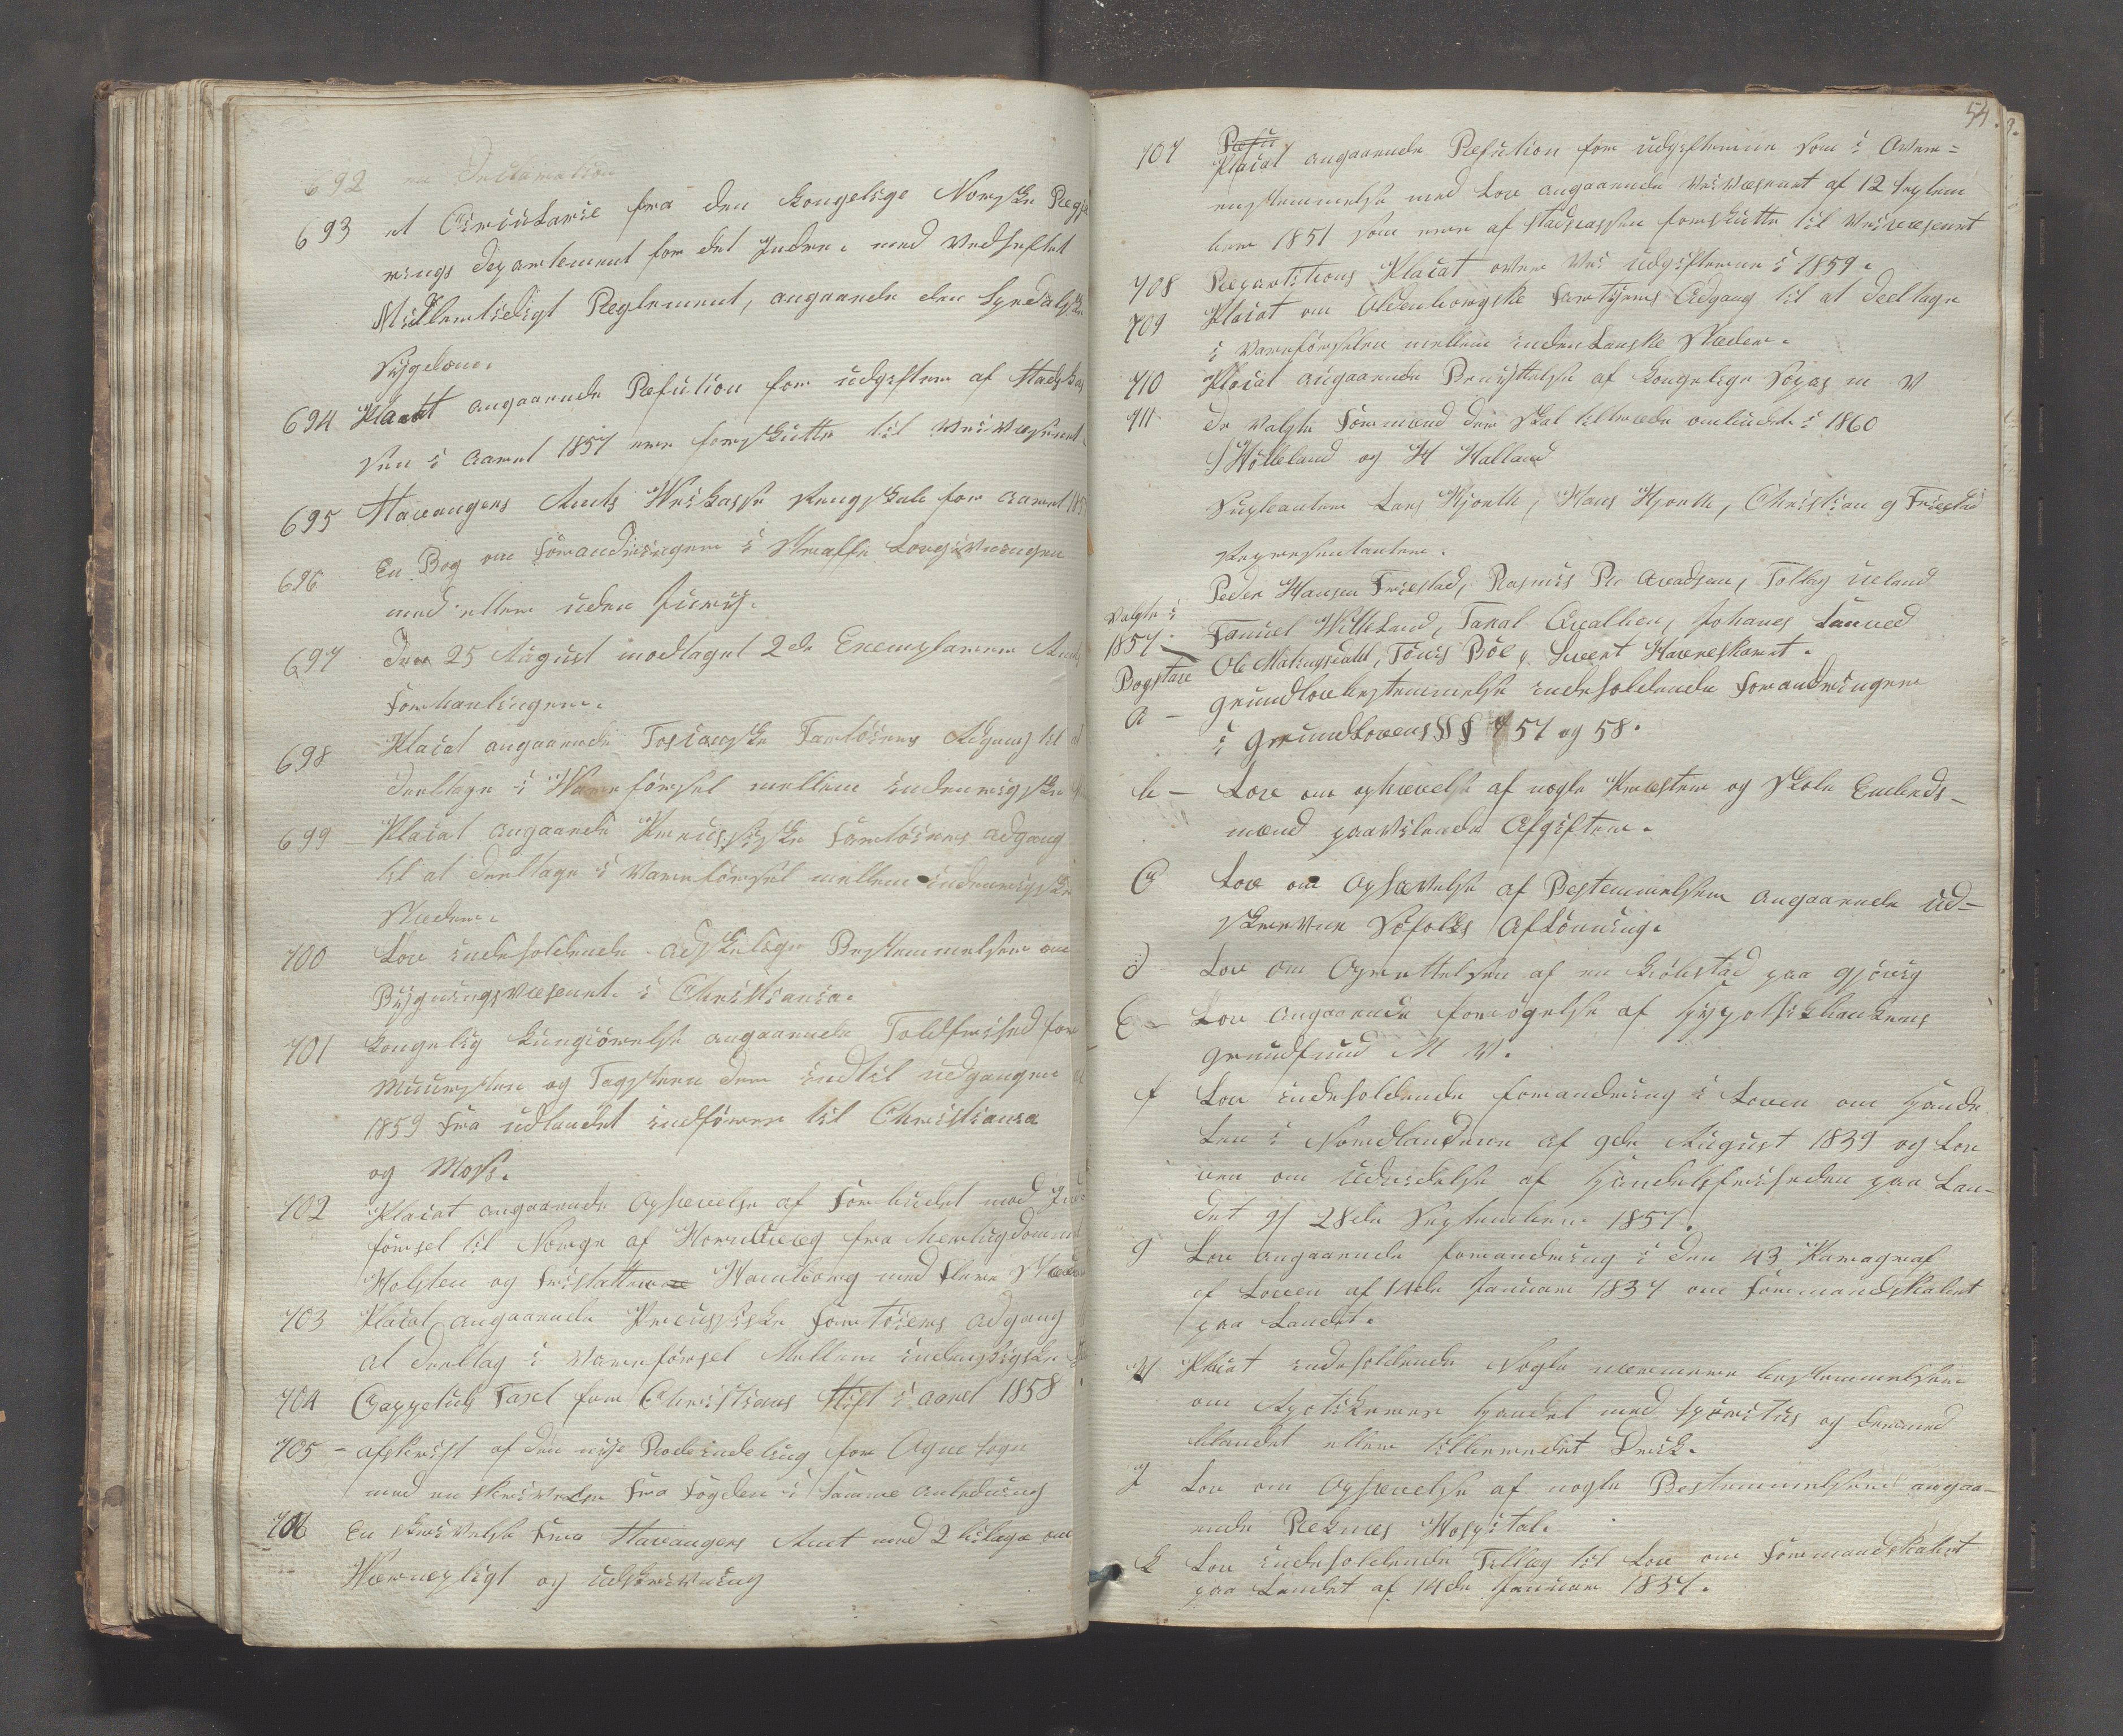 692 en Declamation
693 et Circulærie fra den kongelige Norske Regje
rings departement for det Indre. med Vedheftet
Midlertidigt Reglement, angaaende den Spedalske
Sÿgdom.
694 Placat angaaende Refution for udgifter af Stadskas
sen i Aaret 1857 ere forskutte til Veivæsenet.
695 Stavangers Amts Veikasse Rengskab for aaret 185
696 En Bog om Forandringer i Straffe Lovgivningen
med eller uden Jurÿ.
697 den 25 August modtaget 2de Exemplarer Amts
Formanlingen.
698 Placat angaaende Toscanske Fartöiers Adgang til at
deeltage i Vareförsel mellem indenrigske
699 Placat angaaende Preussiske Fartöiers adgang
til at deeltage i Vareförsel mellem indenrigske
Stæder.
700 Lov indeholdende adskelige Bestemmelser om
Bÿgningsvæsenet i Christiania.
701 kongelig kungiörelse angaaende Toldfrihed for
Muursten og Tagsteen der indtil udgangen af
1859 fra udlandet indförer til Christiania
og Moss.
702 Placat angaaende Ophævelse af Forbudet mod Ind
försel til Norge af HornQvæg fra Hertugdommet
Holsten og fristatterne Hamborg med flere Stæder
703 Placat angaaende Preussiske Fartöiers adgang
at deeltag i Vareförsel Mellem indenrigske
704 Cappetuls Taxt for Christians Stift i aaret 1858
705 - afskrift af den nÿe Rodeindeling for Ogne Sogn
med en skrivelse fra Fogden i samme anledning
706 En skrivelse fra Stavangers Amt med 2 bilage om
Værnepligt og udskrivning
54.
707 Refu
Placat angaaende Refution for udgifterne som i Over=
enstemmelse med Lov angaaende Veivæsenet af 12 Septem
ber 1851 som ere af Stadscassen forskutte til Veivæsenet
708 Repartitions Placat over Vei udgifterne i 1859.
709 Placat om Oldenborgske Fartöiers Adgang til at deeltage
i Vareförselen mellem indenlanske Stæder.
710 Placat angaaende Benÿttelse af kongelige M V
711. De valgte Formænd der skal tiltræde ombudet i 1860
Willeland og H Halland
Supleanter Lars Hjorth, Hans Hjorth, Christian og Friestad
Representanter.
Peder Hansen Friestad, Rasmus Aradsen, Tollag Ueland
Valgte i
1857.
Samuel Willeland, Taral Qvallen, Johanes Launed
Ole Malingsedal, Tönis Böe, Sivert Havreskarret.
Bogstave
a - Grundlovbestemmelse indeholdende Forandringer
i Grundlovens §§ 57 og 58.
b - Lov om ophævelse af nogle Præster og Skole Embeds-
mænd paavilende Afgifter.
C Lov om Ophævelse af Bestemmelser angaaende ud-
skrevne Söfolks Aflönning.
d Lov om Oprettelsen af en kiöbstad paa Gjövig
E - Lov angaaende forögelse af Hÿpothekbankens
Grundfund M V.
f Lov indeholdende forandring i Loven om Hande
len i Nordlandene af 9de August 1839 og Lo
ven om Udvidelse af Handelsfriheden paa Lan-
det af 28de September 1857.
g Lov angaaende forandring i den 43 Paragraf
af Loven af 14de Januar 1837 om Formandskabet
paa Landet.
H Placat indeholdende Nogle nærmere bestemmelser
om Apotikeres Handel med Spiritus og dermed
blandet eller tilberedet Drik.
J Lov om Ophævelse af nogle Bestemmelser angaa-
ende Reknæs Hospital.
k Lov indeholdende Tillæg til Lov om Formandskabet
paa Landet af 14de Januar 1837.